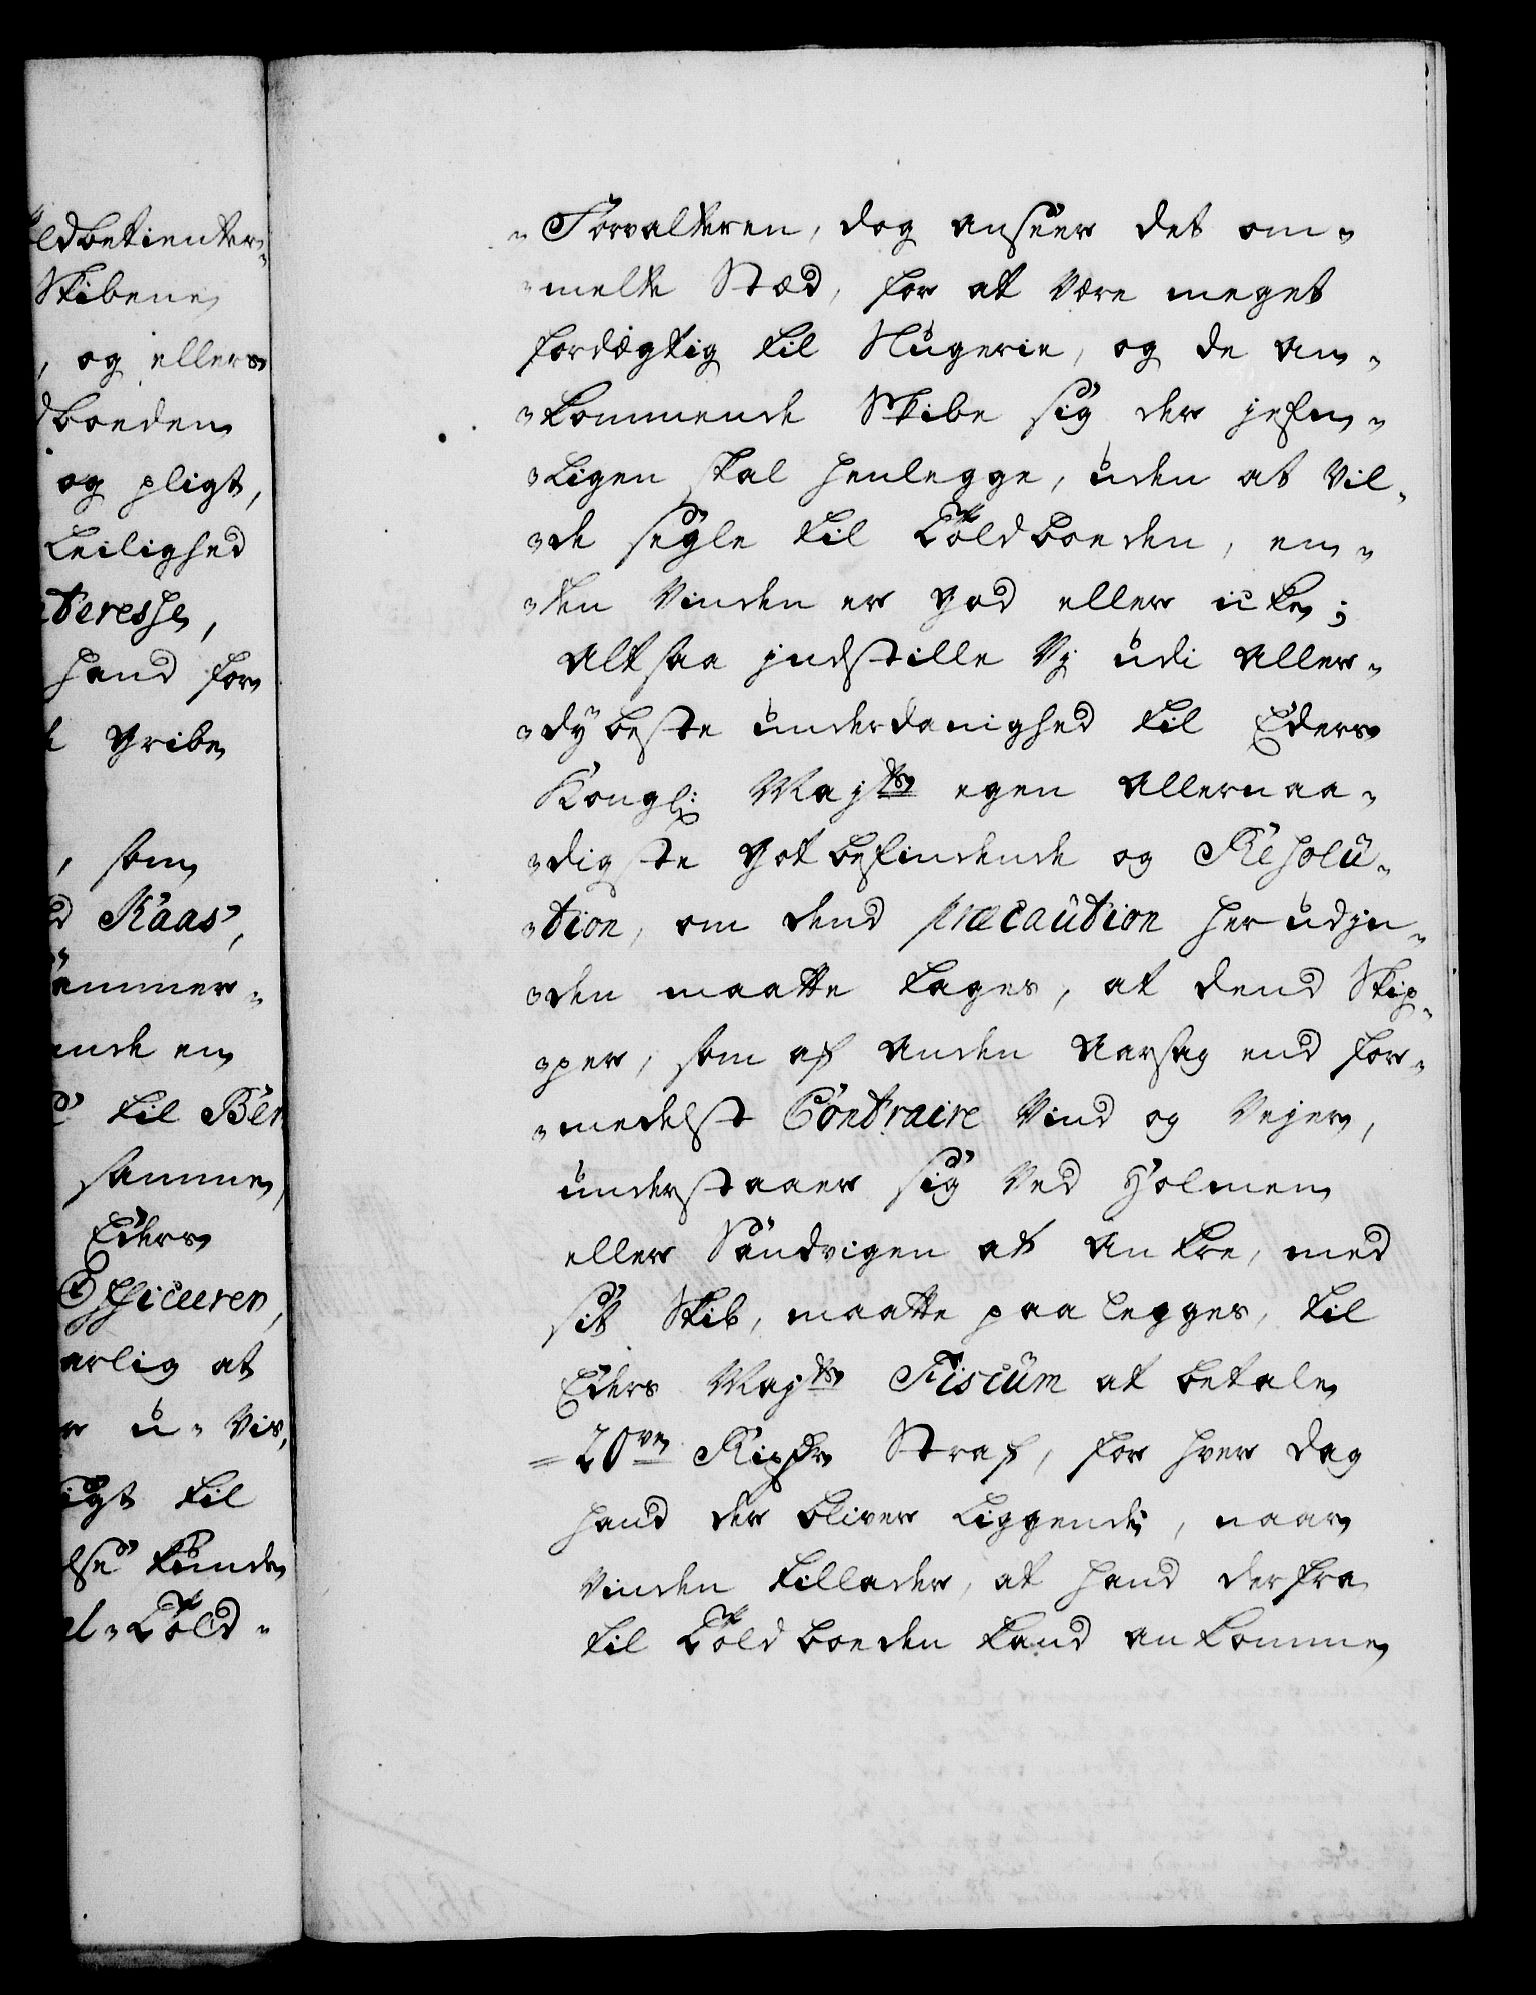 oldbetienter-
Skibene
, og ellers
dboeden
og pligt,
Leilighed
teresse,
hand for
gribe
, som
d Kaas,
ammer-
ende en
til Ber
samme,
Eders
Officerer,
arlig at
r u-vis,
igt til
lse kunde
el-Told-
-Forvalteren, dog anseer det om-
-melte Stæd, for at være meget
fordægtig til Snigerie, og de an-
-kommende Skibe sig der jefn-
-ligen skal henlegge, uden at vil-
-de segle til Toldboeden, en-
-ten Vinden er god eller icke;
Altsaa jndstille Vj udi aller-
-dybeste underdanighed til Eders
Kongl: Majts egen allernaa-
-digste gotbefindende og Resolu-
-tion, om dend præcaution herudjn-
-den maatte tages, at dend Skip-
-per, som af anden aarsag end for-
-medelst Contraire Vind og Vejer,
understaaer sig ved Holmen
eller Sandvigen at ankre, med
sit Skib, maatte paalegges, til
Eders Majts Fiscum at betale
=20ve Rixdr Straf, for hver dag
hand der bliver liggende, naar
Vinden tillader, at hand derfra
til Toldboeden kand ankomme